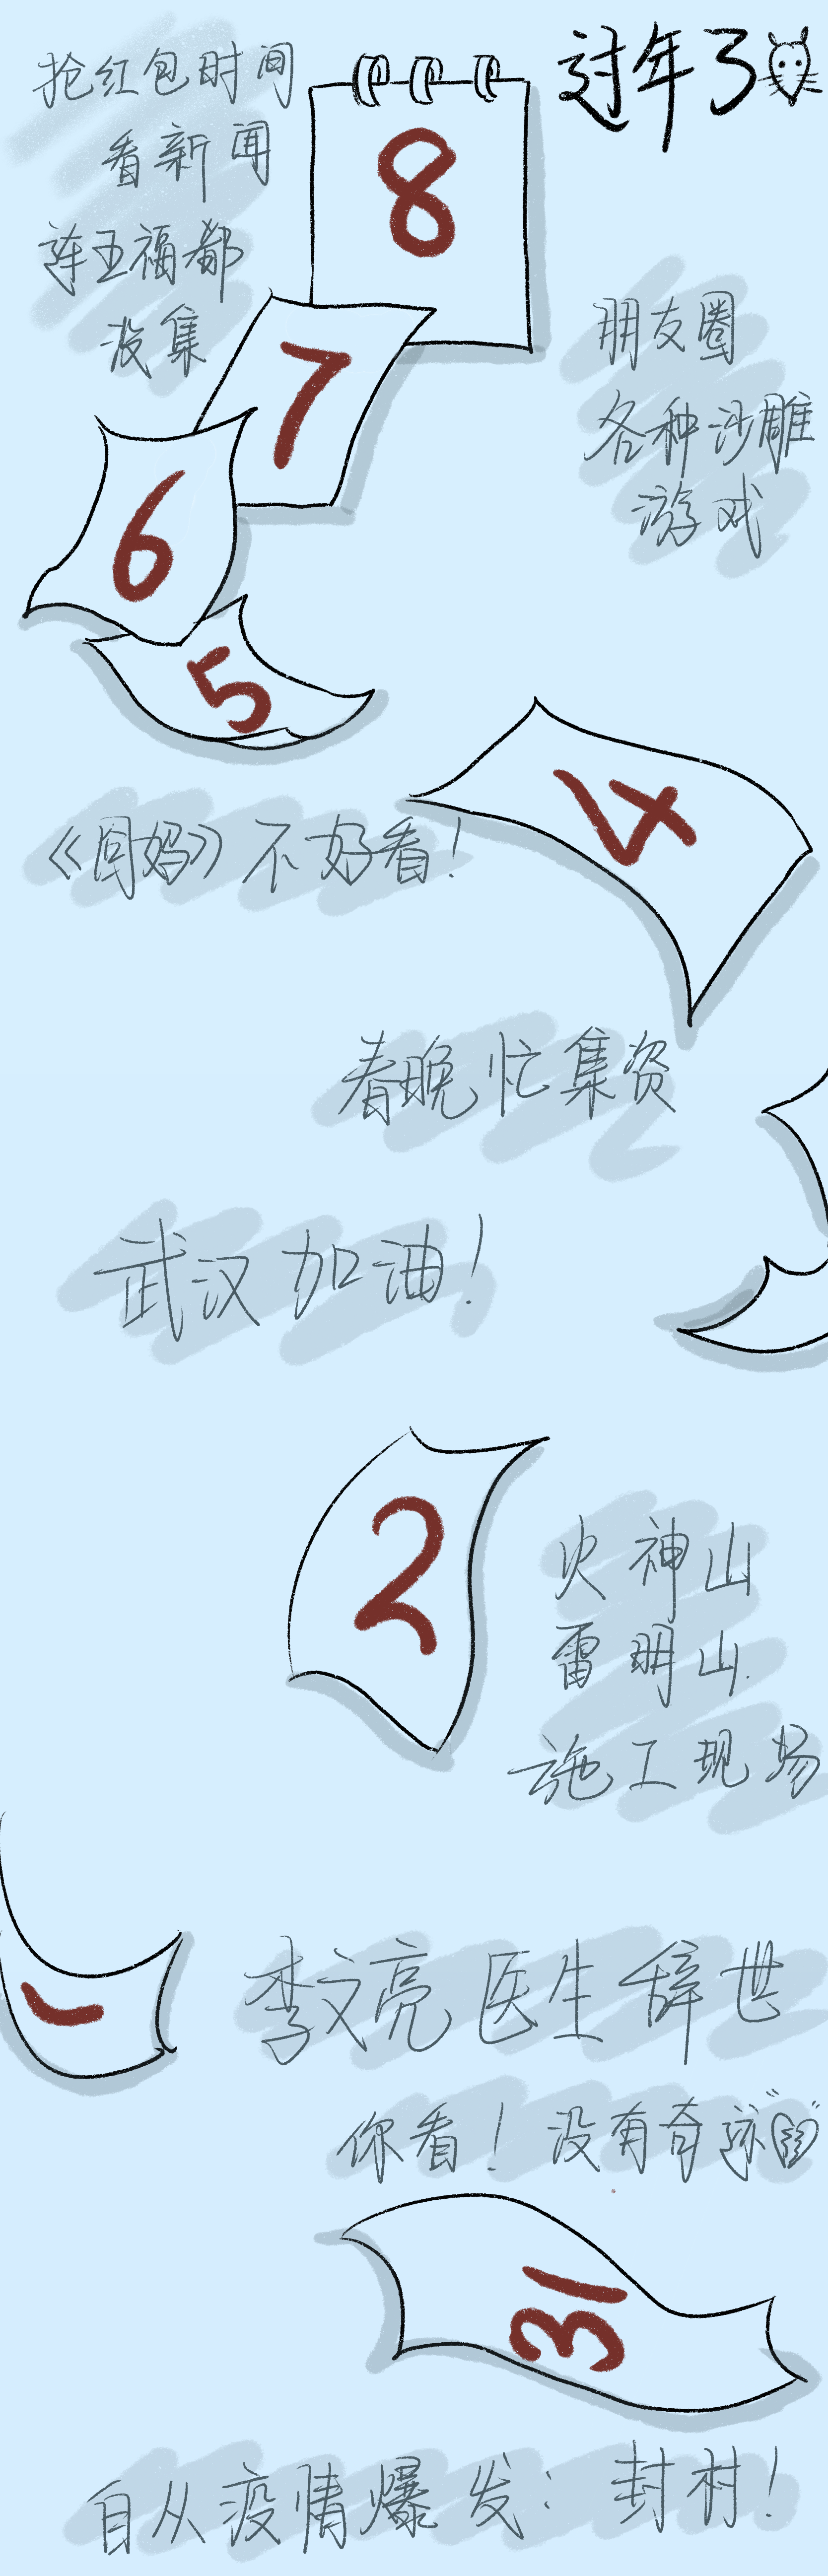 过年了
抢红包时间
看新闻
连五福都
没集
8
7
朋友圈
各种沙雕
游戏
6
5
4
《囧妈》不好看！
春晚忙集资
武汉加油！
2
火神山
雷明山
施工现场
1
李文亮医生辞世
你看！没有奇迹
31
自从疫情爆发：封村！